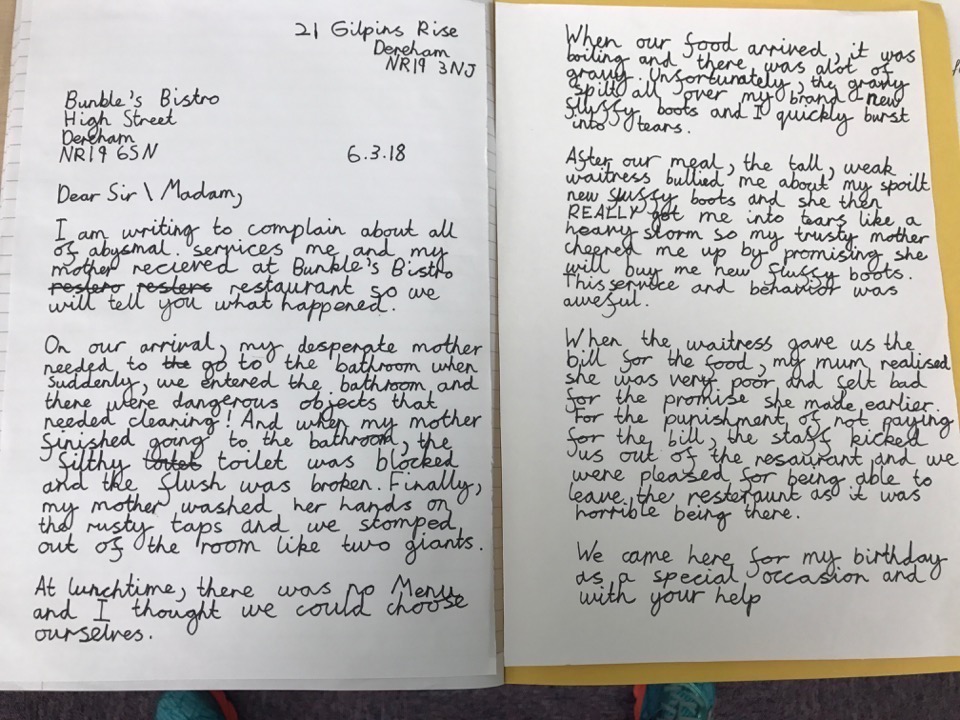 21 Gilpins Rise
Dereham
NR19 3NJ
Bunble's Bistro
High Street
Dereham
NR19 6SN
6.3.18
Dear Sir \ Madam,
I am writing to complain about all
of abysmal services me and my
mother recieved at Bunkle's Bistro
restero resters restaurant so we
will tell you what happened.
On our arrival, my desperate mother
needed to the go to the bathroom when
suddenly, we entered the bathroom and
there were dangerous objects that
needed cleaning! And when my mother
finished going to the bathroom, the
filthy toitet toilet was blocked
and the flush was broken. Finally,
my mother washed her hands on
the rusty taps and we stomped
out of the room like two giants.
At lunchtime, there was no Menu
and I thought we could choose
ourselves.
When our food arrived, it was
boiling and there was alot of
gravy. Unfortunately, the gravy
spilt all over my brand new
fluffy boots and I quickly burst
into tears.
After our meal, the tall, weak
waitress bullied me about my spoilt
new fluffy boots and she then
REALLY got me into tears like a
heavy storm so my trusty mother
cheered me up by promising she
will buy me new fluffy boots.
This service and behavior was
aweful.
When the waitress gave us the
bill for the food, my mum realised
she was very poor and felt bad
for the promise she made earlier.
For the punishment of not paying
for the bill, the staff kicked
us out of the resaurant and we
were pleased for being able to
leave the resteraunt as it was
horrible being there.
We came here for my birthday
as a special occasion and
with your help